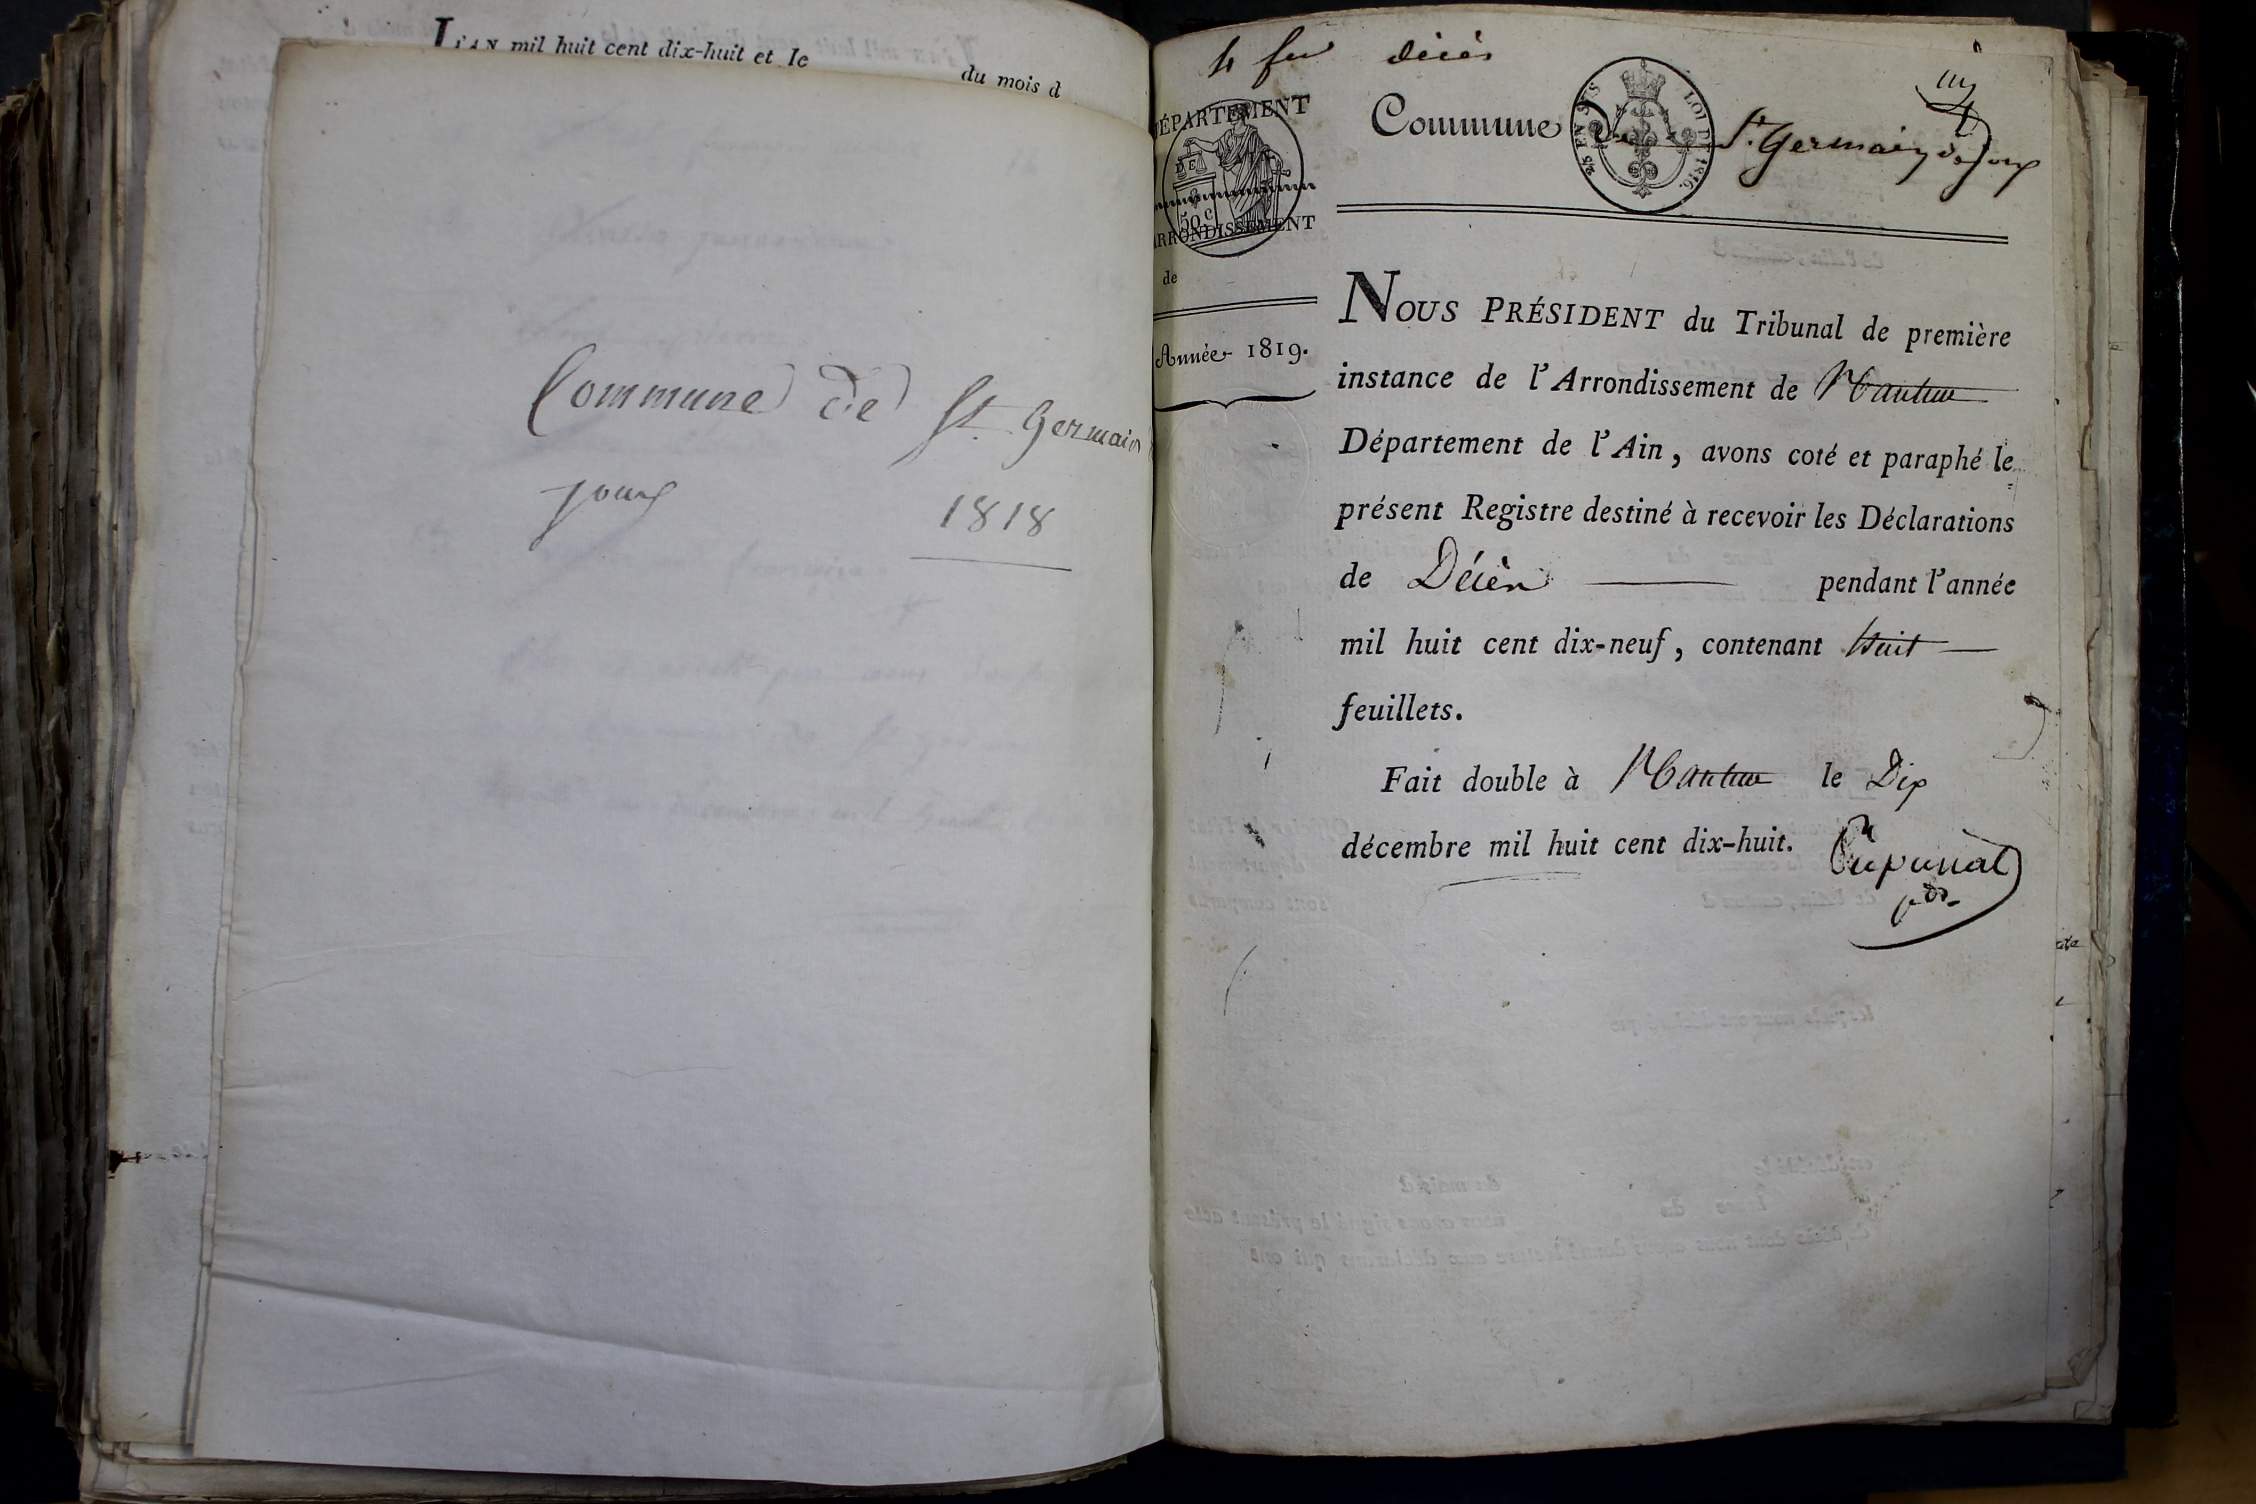 L'AN mil huit cent dix-huit et le
du mois d
Commune de St. Germain
joux
1818
4 feu décès
DÉPARTEMENT
DE
50 c
ARRONDISSEMENT
de
Année 1819.
Commune de St. Germain de Joux
25 EN SUS LOI DE 1816.
NOUS PRÉSIDENT du Tribunal de première
instance de l'Arrondissement de Nantua
Département de l'Ain, avons coté et paraphé le
présent Registre destiné à recevoir les Déclarations
de Décès pendant l'année
mil huit cent dix-neuf, contenant huit
feuillets.
Fait double à Nantua le Dix
décembre mil huit cent dix-huit.